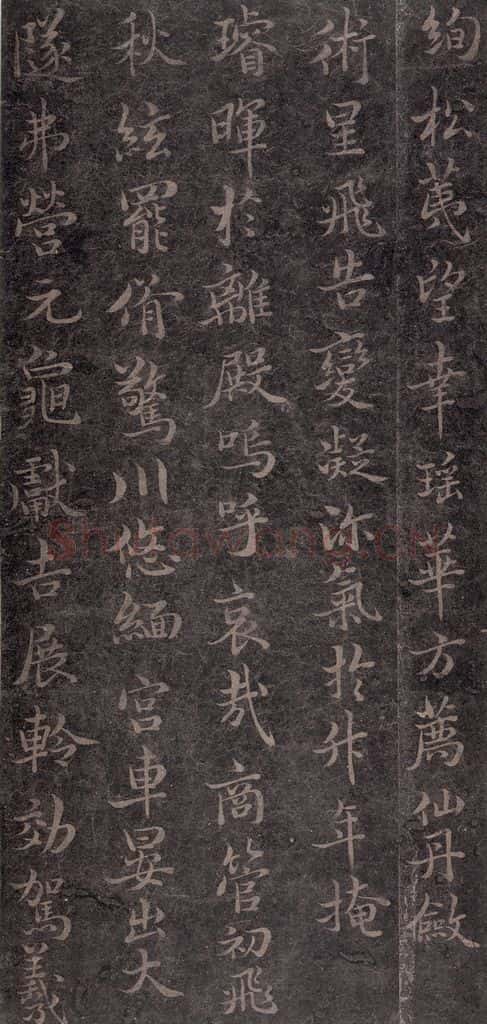 絢松荑望幸瑤華方薦仙丹斂
術星飛告變凝沴氣於升年掩
璿暉於離殿嗚呼哀哉商管初飛
秋絃罷脩驚川悠緬宮車晏出大
隧弗營元龜獻吉展軨効駕羲
Shufawang.cn